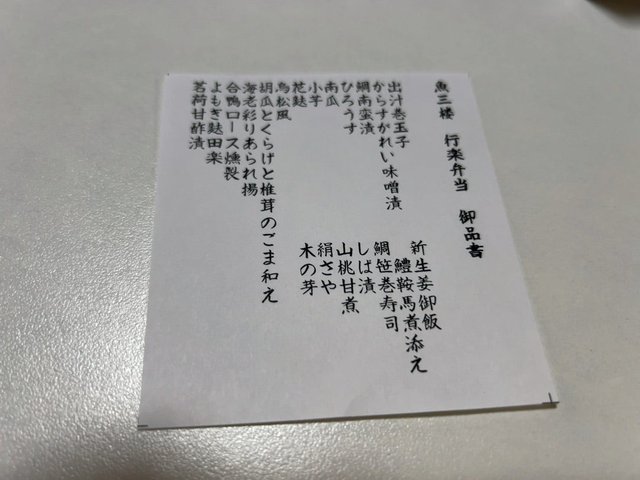 魚三楼　行楽弁当　御品書
出汁巻玉子
からすがれい味噌漬
鯛南蛮漬
ひろうす
南瓜
小芋
花麩
鳥松風
胡瓜とくらげと椎茸のごま和え
海老彩りあられ揚
合鴨ロース燻製
よもぎ麩田楽
茗荷甘酢漬
新生姜御飯
鱧鞍馬煮添え
鯛笹巻寿司
しば漬
山桃甘煮
絹さや
木の芽